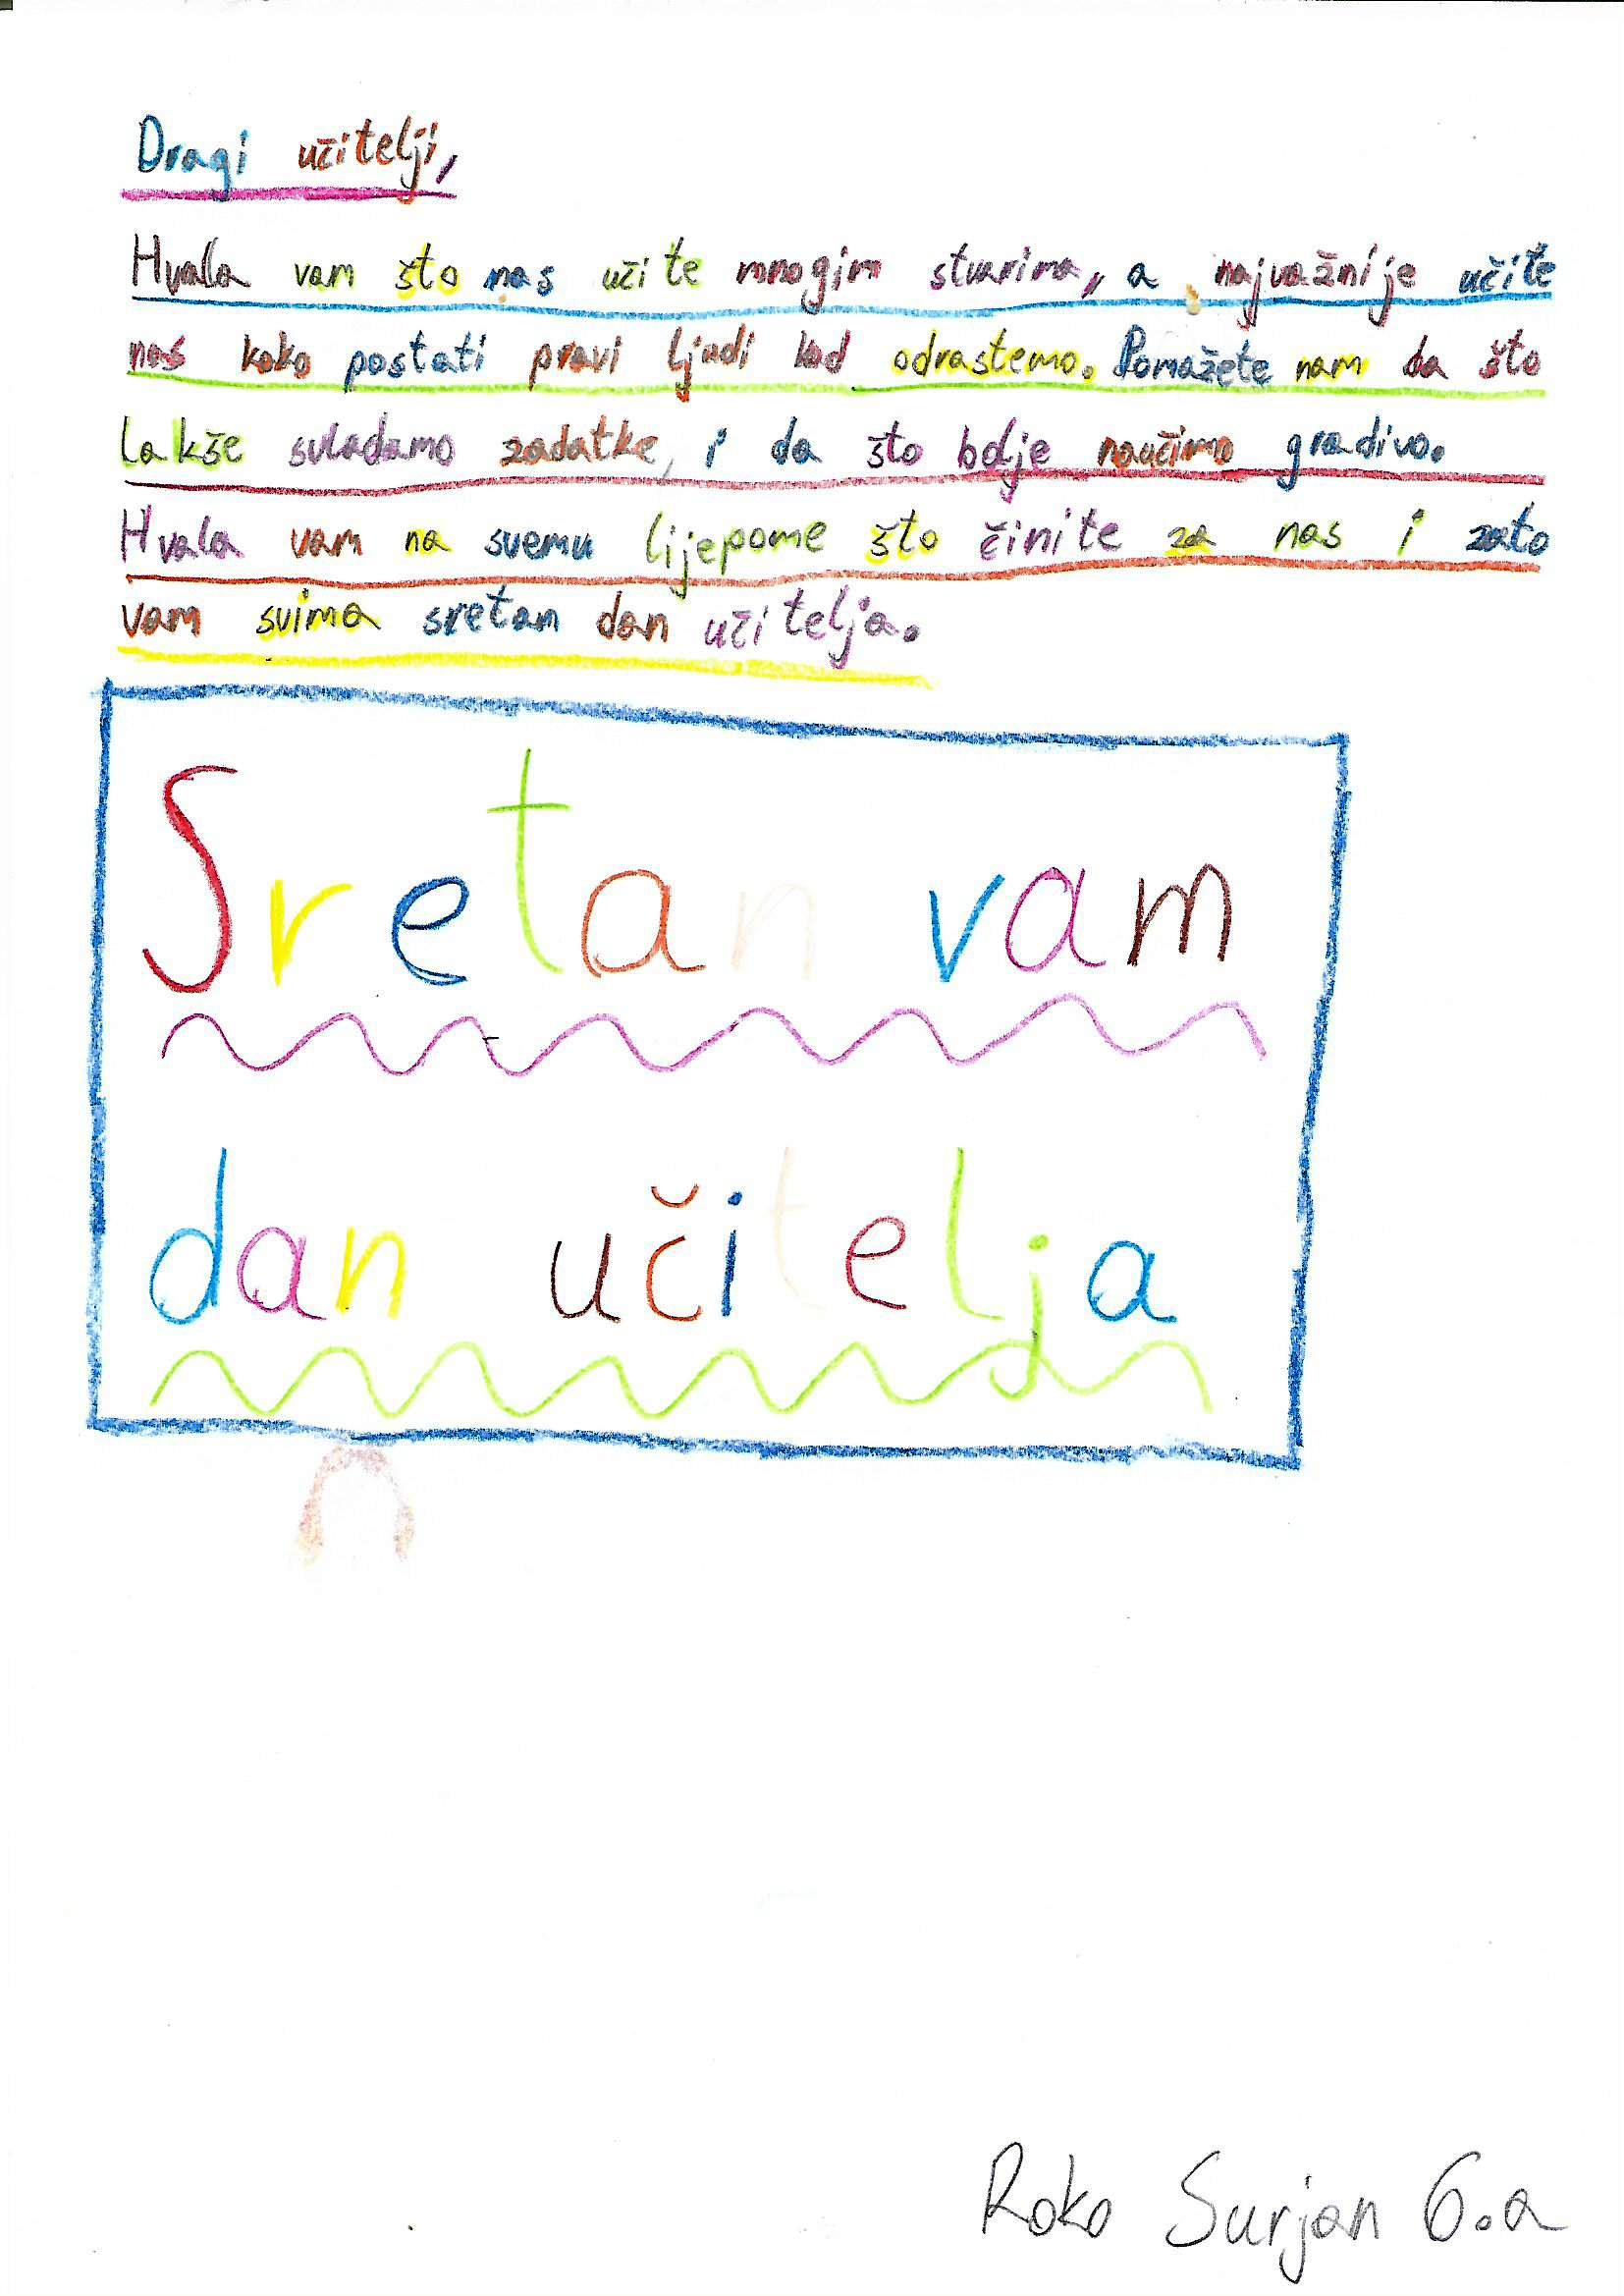 Dragi učitelji,
Hvala vam što nas učite mnogim stvarima, a najvažnije učite
nas kako postati pravi ljudi kad odrastemo. Pomažete nam da što
lakše svladamo zadatke, i da što bolje naučimo gradivo.
Hvala vam na svemu lijepome što činite za nas i zato
vam svima sretan dan učitelja.
Sretan vam
dan učitelja
Roko Surjan 6.a